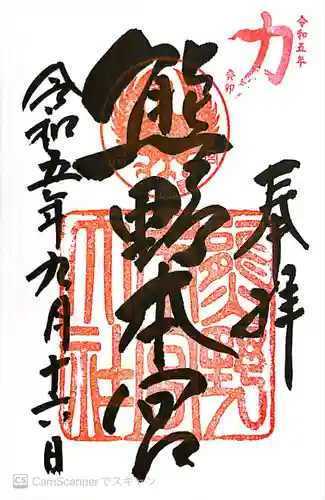 力
令和五年
癸卯
奉拝
熊野本宮
令和五年九月十六日
CS CamScannerでスキャン